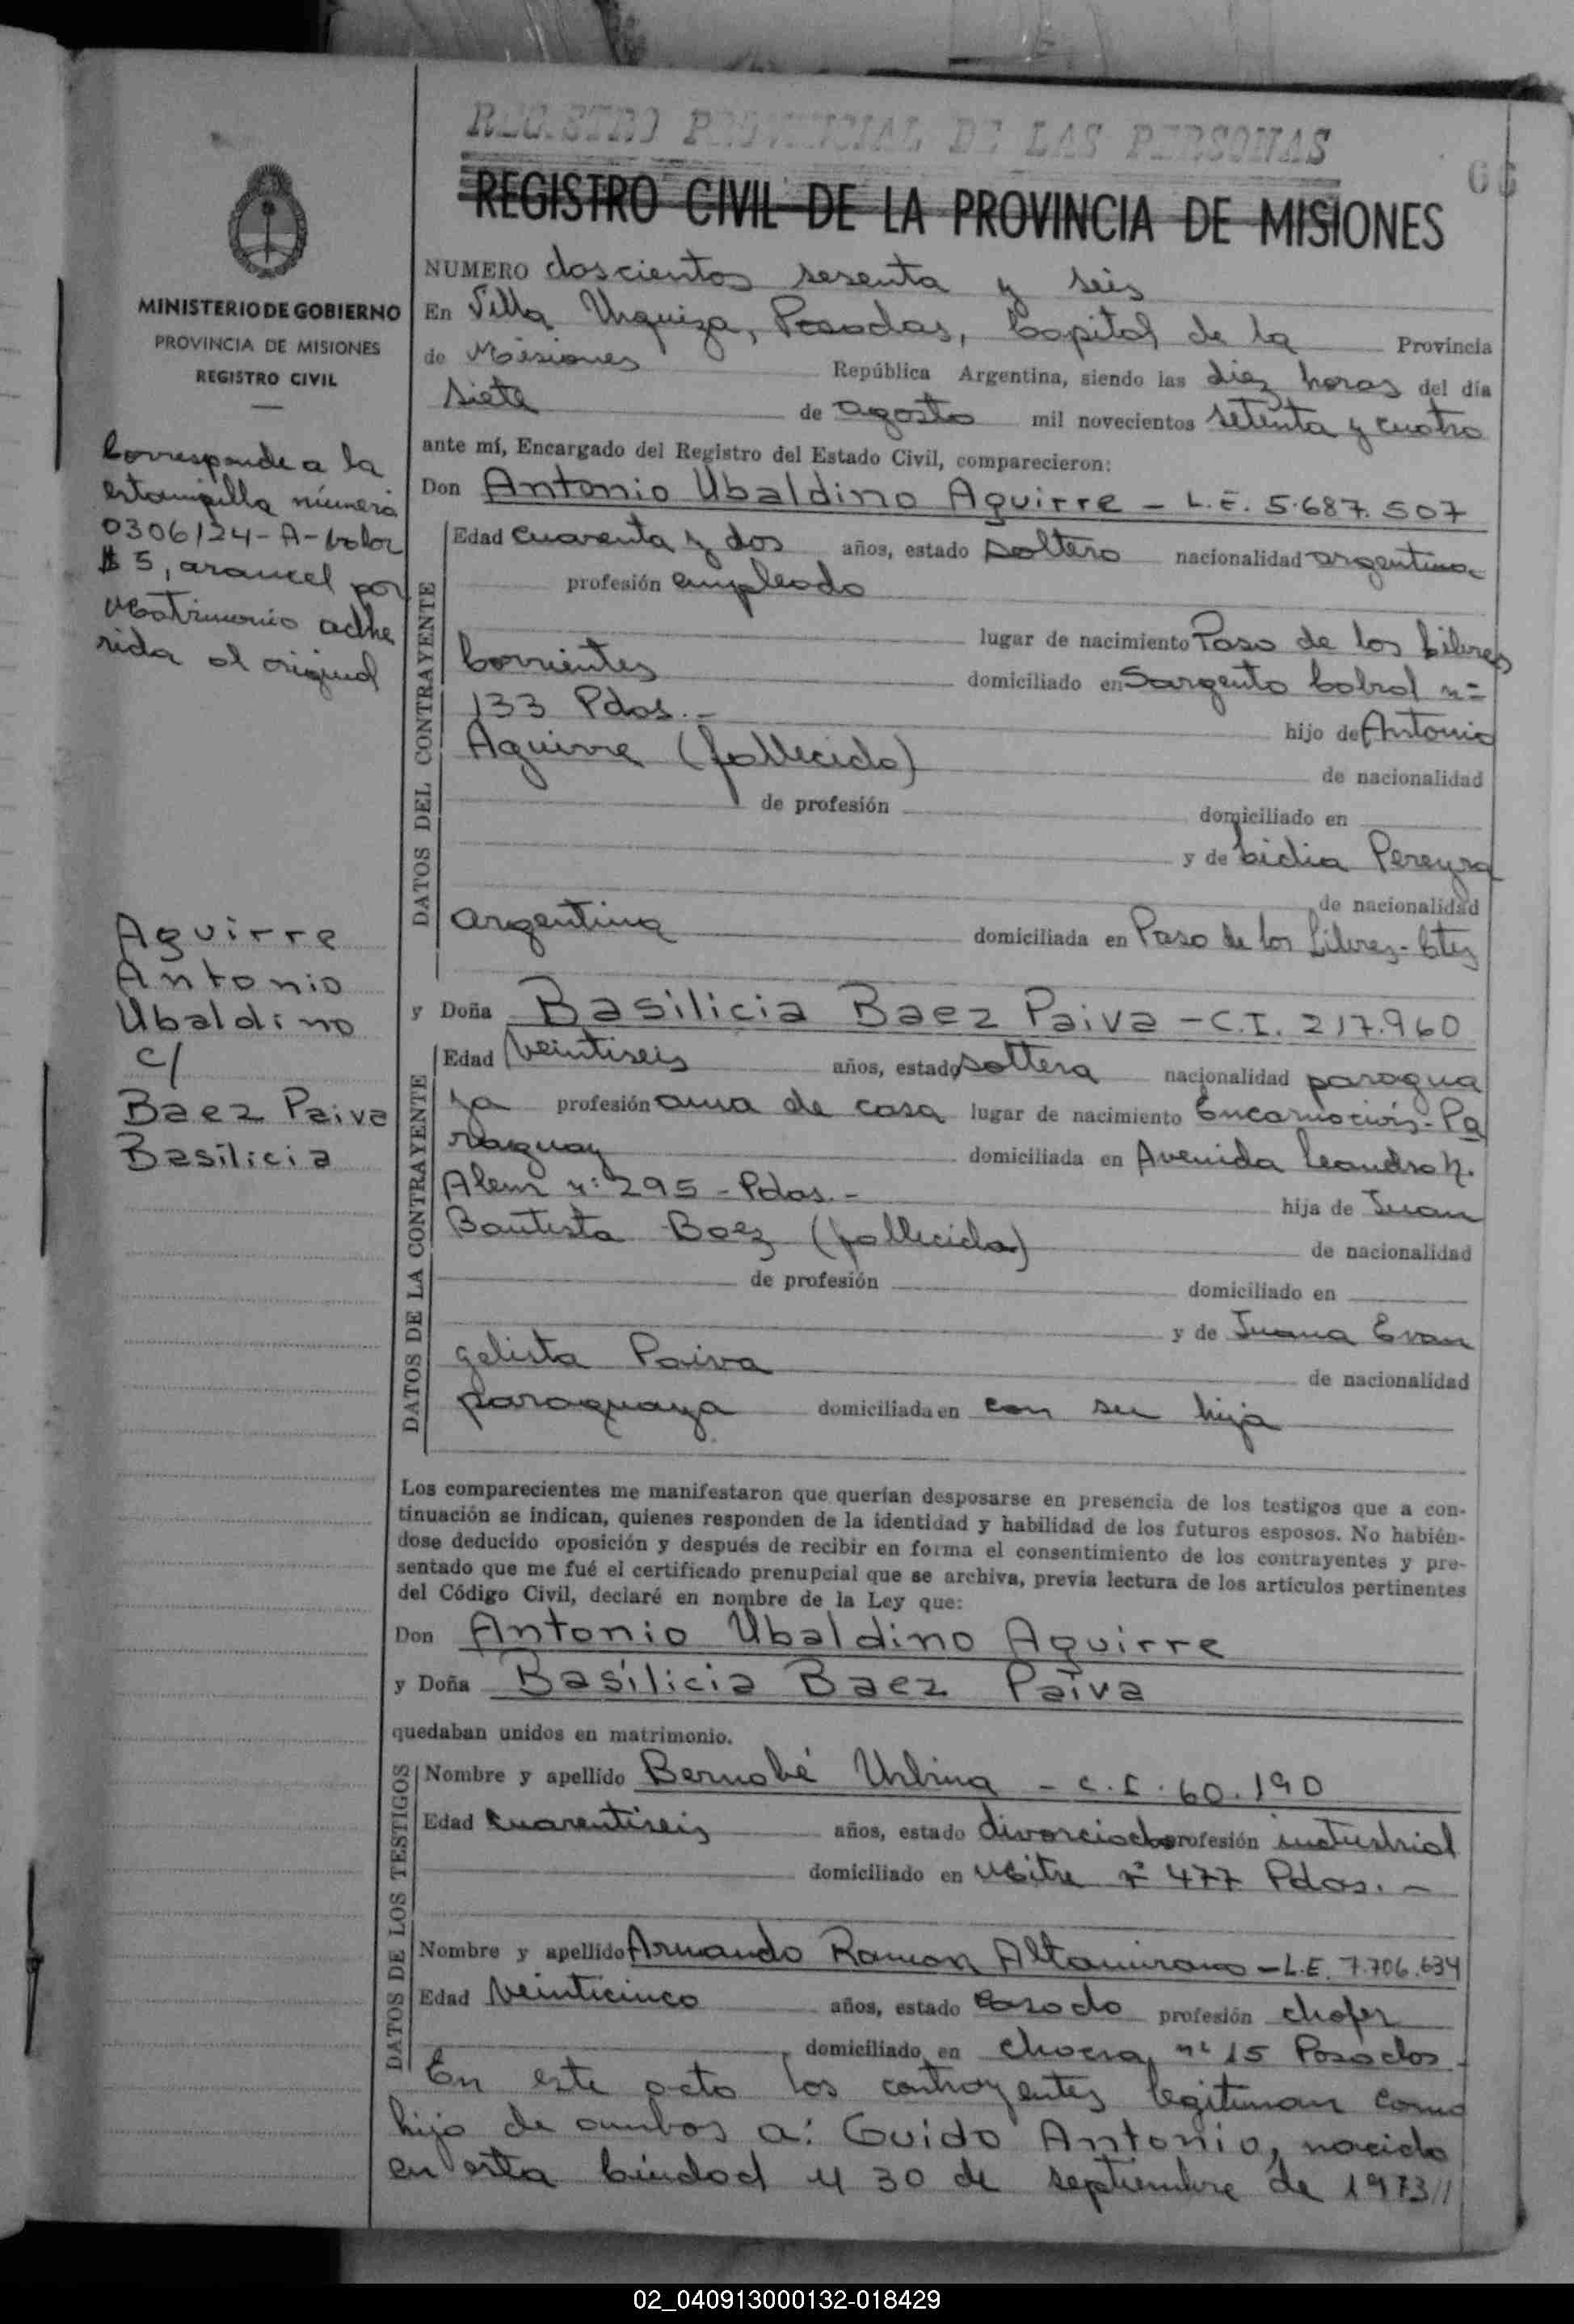 REGISTRO PROVINCIAL DE LAS PERSONAS
REGISTRO CIVIL DE LA PROVINCIA DE MISIONES
66
MINISTERIO DE GOBIERNO
PROVINCIA DE MISIONES
REGISTRO CIVIL
Corresponde a la
estampilla número
0306124-A-valor
$ 5, arancel por
Matrimonio adhe
rida al original
Aguirre
Antonio
Ubaldino
c/
Baez Paiva
Basilicia
NUMERO doscientos sesenta y seis
En Villa Urquiza, Posadas, Capital de la Provincia
de Misiones República Argentina, siendo las diez horas del día
siete de agosto mil novecientos setenta y cuatro
ante mí, Encargado del Registro del Estado Civil, comparecieron:
Don Antonio Ubaldino Aguirre - L.E. 5.687.507
DATOS DEL CONTRAYENTE
Edad cuarenta y dos años, estado soltero nacionalidad argentina
profesión empleado
lugar de nacimiento Paso de los Libres
Corrientes domiciliado en Sargento Cabral nº
133 Pdas.-
hijo de Antonio
Aguirre (fallecido) de nacionalidad
de profesión domiciliado en
y de Lidia Pereyra
de nacionalidad
argentina domiciliada en Paso de los Libres-Ctes
y Doña Basilicia Baez Paiva - C.I. 217.960
DATOS DE LA CONTRAYENTE
Edad veintiseis años, estado soltera nacionalidad paragua
ya profesión ama de casa lugar de nacimiento Encarnación-Pa
raguay domiciliada en Avenida Leandro N.
Alem nº 295 - Pdas.- hija de Juan
Bautista Baez (fallecido) de nacionalidad
de profesión domiciliado en
y de Juana Evan
gelista Paiva de nacionalidad
paraguaya domiciliada en con su hija
Los comparecientes me manifestaron que querían desposarse en presencia de los testigos que a con-
tinuación se indican, quienes responden de la identidad y habilidad de los futuros esposos. No habién-
dose deducido oposición y después de recibir en forma el consentimiento de los contrayentes y pre-
sentado que me fué el certificado prenupcial que se archiva, previa lectura de los artículos pertinentes
del Código Civil, declaré en nombre de la Ley que:
Don Antonio Ubaldino Aguirre
y Doña Basilicia Baez Paiva
quedaban unidos en matrimonio.
DATOS DE LOS TESTIGOS
Nombre y apellido Bernabé Urbina - C.I. 60.190
Edad cuarentiseis años, estado divorciado profesión industrial
domiciliado en Mitre nº 477 Pdas.-
Nombre y apellido Armando Ramon Altamirano - L.E. 7.706.634
Edad veinticinco años, estado casado profesión chofer
domiciliado en chacra nº 15 Posadas-
En este acto los contrayentes legitiman como
hijo de ambos a: Guido Antonio, nacido
en esta Ciudad el 30 de septiembre de 1973//
02_040913000132-018429